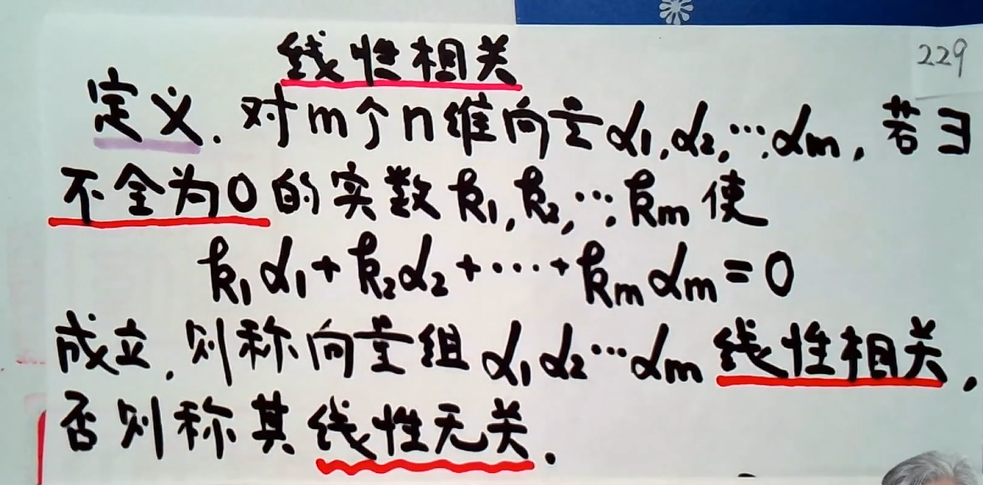 229
线性相关
定义. 对m个n维向量α1,α2,…αm, 若∃
不全为0的实数k1,k2,…,km使
k1α1+k2α2+…+kmαm=0
成立, 则称向量组α1α2…αm线性相关,
否则称其线性无关.